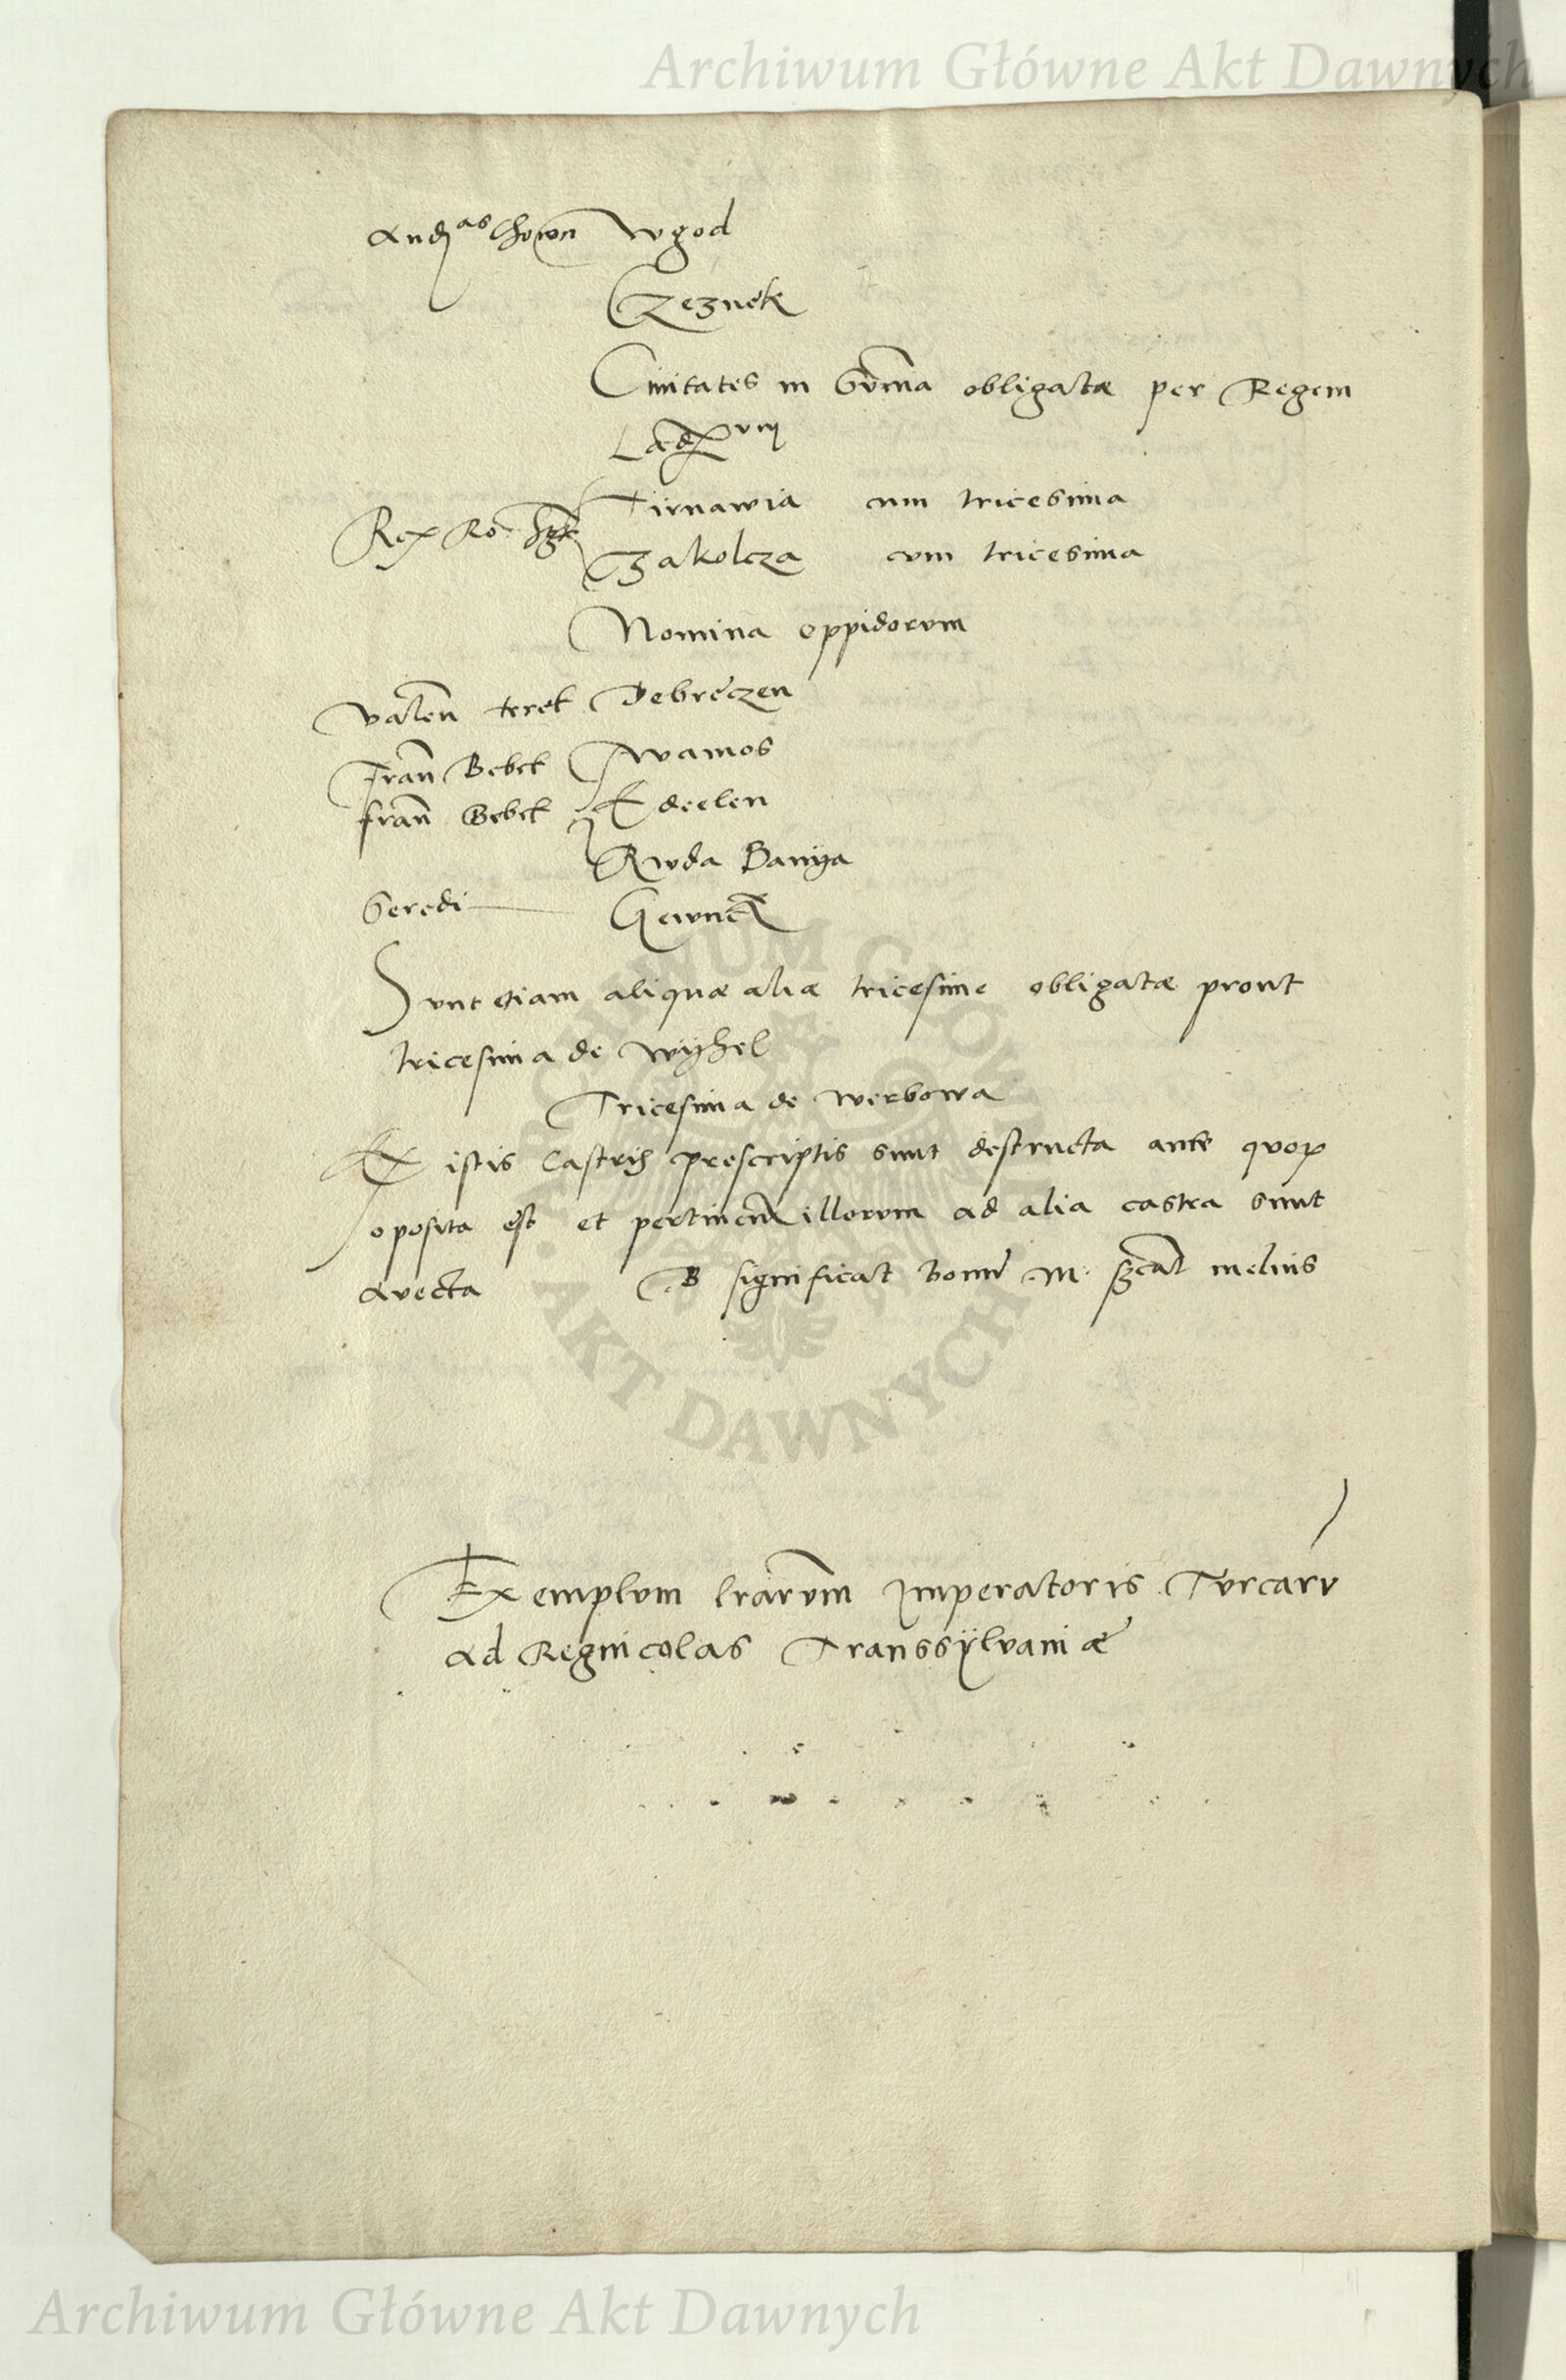 Archiwum Główne Akt Dawnych
Andras Chown Wgod
Czeznek
Ciuitates in Suma obligatæ per Regem
Lad
Tirnawia cum tricesima
Rex Ro
Zakolcza cum tricesima
Nomina oppidorvm
Valen teret Debreczen
Fran Bebek Wamos
fran Bebek Edeelen
Rwda Banÿa
Seredi
Svnt etiam aliquæ aliæ tricesime obligatæ prout
tricesima de Wÿhel
Tricesima de Werbowa
Ex istis Castris prescriptis sunt destructa ante quor
oposita est et pertinen illorvm ad alia castra sunt
auecta B significat bonu M: melius
Exemplvm lrarvm Imperatoris Tvrcarv
ad Regnicolas Transsÿlvaniæ
ARCHIWUM GŁÓWNE
AKT DAWNYCH
Archiwum Główne Akt Dawnych